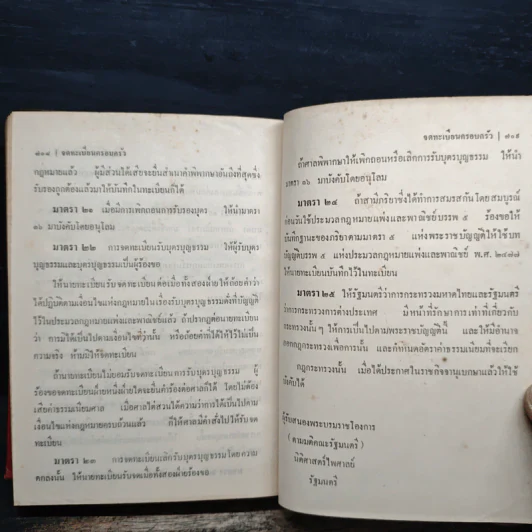 ๓๐๔ | จดทะเบียนครอบครัว
กฎหมายแล้ว ผู้มีส่วนได้เสียจะยื่นสำเนาคำพิพากษาอันถึงที่สุดซึ่ง
รับรองถูกต้องแล้วมาให้บันทึกในทะเบียนก็ได้
มาตรา ๒๑ เมื่อมีการเพิกถอนการรับรองบุตร ให้นำมาตรา
๑๖ มาบังคับโดยอนุโลม
มาตรา ๒๒ การจดทะเบียนรับบุตรบุญธรรม ให้ผู้รับบุตร
บุญธรรมและบุตรบุญธรรมเป็นผู้ร้องขอ
ให้นายทะเบียนรับจดทะเบียนต่อเมื่อทั้งสองฝ่ายให้ถ้อยคำว่า
ได้ปฏิบัติตามเงื่อนไขแห่งกฎหมายในเรื่องรับบุตรบุญธรรมดังที่บัญญัติ
ไว้ในประมวลกฎหมายแพ่งและพาณิชย์แล้ว ถ้าปรากฏต่อนายทะเบียน
ว่า การมิได้เป็นไปตามเงื่อนไขที่ว่านั้น หรือถ้อยคำที่ได้ให้ไว้ไม่เป็น
ความจริง ห้ามมิให้จดทะเบียน
ถ้านายทะเบียนไม่ยอมรับจดทะเบียนรับบุตรบุญธรรม ผู้
ร้องขอจดทะเบียนฝ่ายหนึ่งฝ่ายใดจะยื่นคำร้องต่อศาลก็ได้ โดยไม่ต้อง
เสียค่าธรรมเนียมศาล เมื่อศาลไต่สวนได้ความว่าการได้เป็นไปตาม
เงื่อนไขแห่งกฎหมายครบถ้วนแล้ว ก็ให้ศาลมีคำสั่งไปให้รับจด
ทะเบียน
มาตรา ๒๓ การจดทะเบียนเลิกรับบุตรบุญธรรมโดยความ
ตกลงนั้น ให้นายทะเบียนรับจดเมื่อทั้งสองฝ่ายร้องขอ
จดทะเบียนครอบครัว | ๓๐๕
ถ้าศาลพิพากษาให้เพิกถอนหรือเลิกการรับบุตรบุญธรรม ให้นำ
มาตรา ๑๖ มาบังคับโดยอนุโลม
มาตรา ๒๔ ถ้าสามีภริยาซึ่งได้ทำการสมรสกันโดยสมบูรณ์
ก่อนวันใช้ประมวลกฎหมายแพ่งและพาณิชย์บรรพ ๕ ร้องขอให้
บันทึกฐานะของภริยาตามมาตรา ๕ แห่งพระราชบัญญัติให้ใช้บท
บัญญัติบรรพ ๕ แห่งประมวลกฎหมายแพ่งและพาณิชย์ พ.ศ. ๒๔๗๗
ให้นายทะเบียนบันทึกไว้ในทะเบียน
มาตรา ๒๕ ให้รัฐมนตรีว่าการกระทรวงมหาดไทยและรัฐมนตรี
ว่าการกระทรวงการต่างประเทศ มีหน้าที่รักษาการเท่าที่เกี่ยวกับ
กระทรวงนั้น ๆ ให้การเป็นไปตามพระราชบัญญัตินี้ และให้มีอำนาจ
ออกกฎกระทรวงเพื่อการนั้น และกำหนดอัตราค่าธรรมเนียมที่จะเรียก
กฎกระทรวงนั้น เมื่อได้ประกาศในราชกิจจานุเบกษาแล้วให้ใช้
บังคับได้
ผู้รับสนองพระบรมราชโองการ
(ตามมติคณะรัฐมนตรี)
นิติศาสตร์ไพศาลย์
รัฐมนตรี